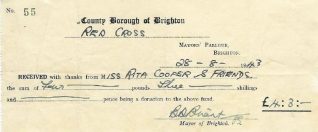 No. 55
County Borough of Brighton
RED CROSS
MAYORS' PARLOUR,
BRIGHTON.
28 - 8 - 1943
RECEIVED with thanks from MISS RITA COOPER & FRIENDS.
the sum of Four pounds Three shillings
and pence being a donation to the above fund
£4:3:-
Mayor of Brighton.